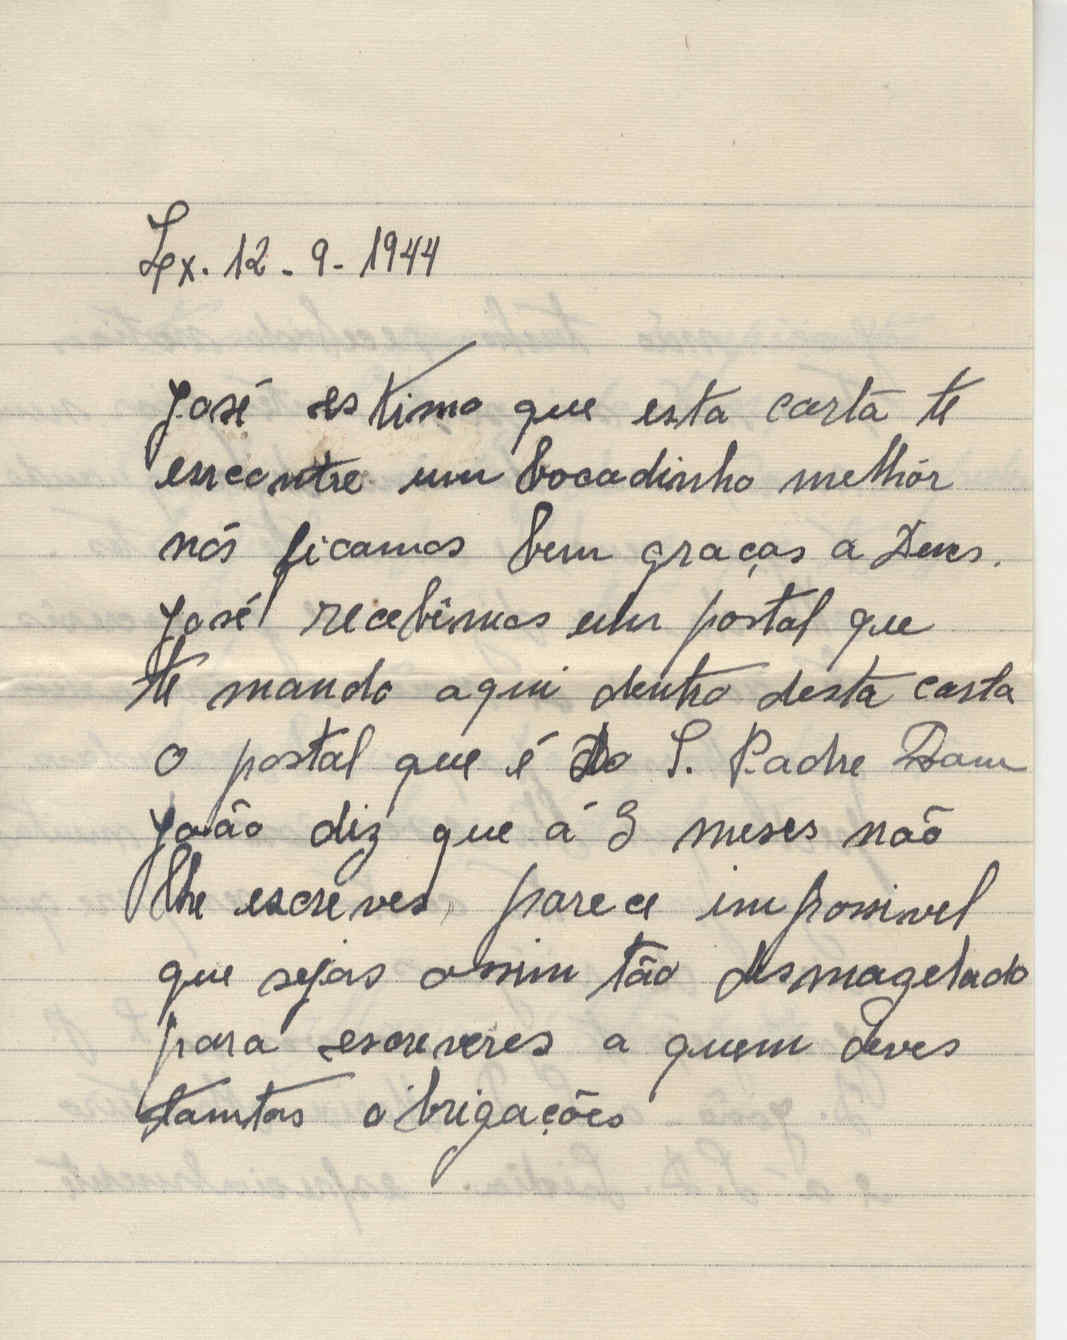 Lx. 12-9-1944
José estimo que esta carta te
encontre um bocadinho melhór
nós ficamos bem graças a Deus.
José recebîmos um postal que
te mando aqui dentro desta carta
O postal que é do S. Padre Dam
João diz que á 3 meses não
lhe escreves, parece impossivel
que sejas assim tão desmazelado
para escreveres a quem deves
tamtas obrigações